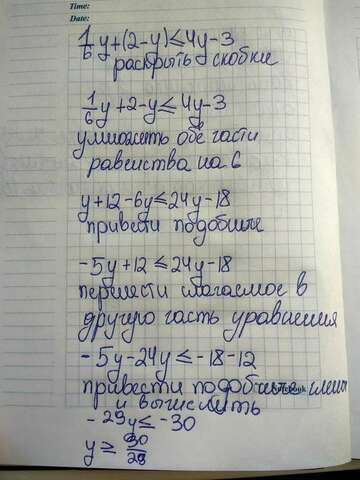 Time:
Date:
1/6 y+(2-y)≤4y-3
раскрыть скобки
1/6 y+2-y≤4y-3
умножить обе части
равенства на 6
y+12-6y≤24y-18
привести подобные
-5y+12≤24y-18
перенести слагаемое в
другую часть уравнения
-5y-24y≤-18-12
привести подобные члены
и вычислить
-29y≤-30
y≥ 30/29